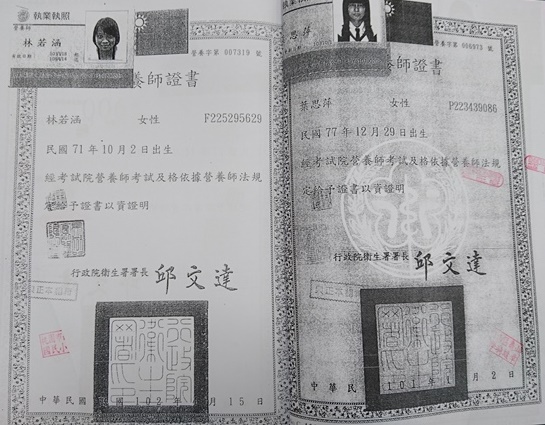 執業執照
營養師
林若涵
營養字第 007319 號
養師證書
林若涵 女性 F225295629
民國 71 年 10 月 2 日出生
經考試院營養師考試及格依據營養師法規
定給予證書以資證明
行政院衛生署署長 邱文達
行政院衛生署
中華民國 102 年 月 15 日
思萍
營養字第 006973 號
養師證書
葉思萍 女性 P223439086
民國 77 年 12 月 29 日出生
經考試院營養師考試及格依據營養師法規
定給予證書以資證明
行政院衛生署署長 邱文達
中華民國 101 年 月 2 日